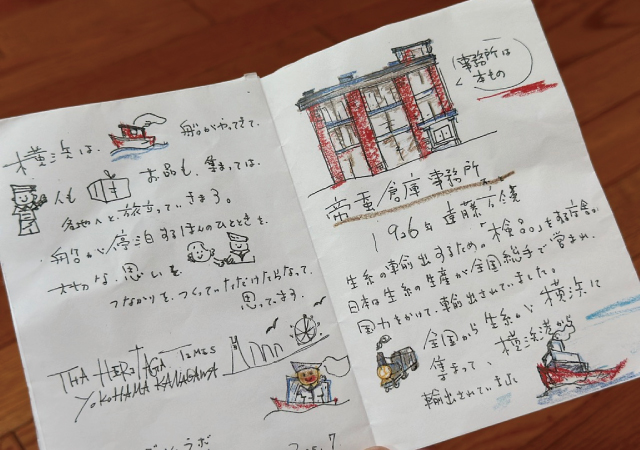 横浜は、船がやってきて、
人も お品も、集まっては、
各地へと旅立っていきます。
船が停泊するほんのひとときを、
大切な思いを
つながりを、つくっていただけたらなって、
思ってます。
THA HERITAGA TIMES
YOKOHAMA KANAGAWA
7
(事務所は
本もの
帝蚕倉庫事務所
1926年 遠藤於菟
生糸の輸出するため。「検品」をする宿舎。
日本は生糸の生産が全国総手で営まれ、
国力をかけて、輸出されていました。
全国から生糸が横浜に
集まって、横浜港から
輸出されていました